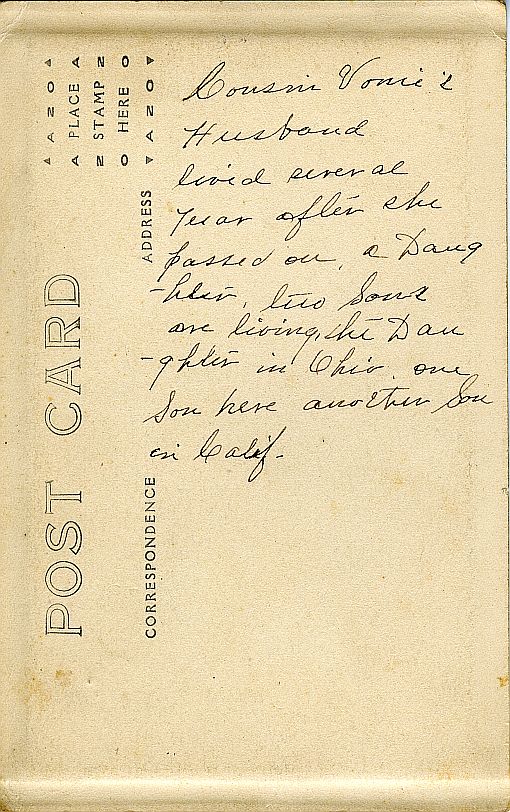 Cousin Vonie's
Husband
lived several
year after she
passed on, a Daug
-hter, two Sons
are living, the Dau
-ghter in Ohio. one
Son here another Son
in Calif.
POST CARD
CORRESPONDENCE
ADDRESS
▲ A Z O ▲
A PLACE A
Z STAMP Z
O HERE O
▼ A Z O ▼